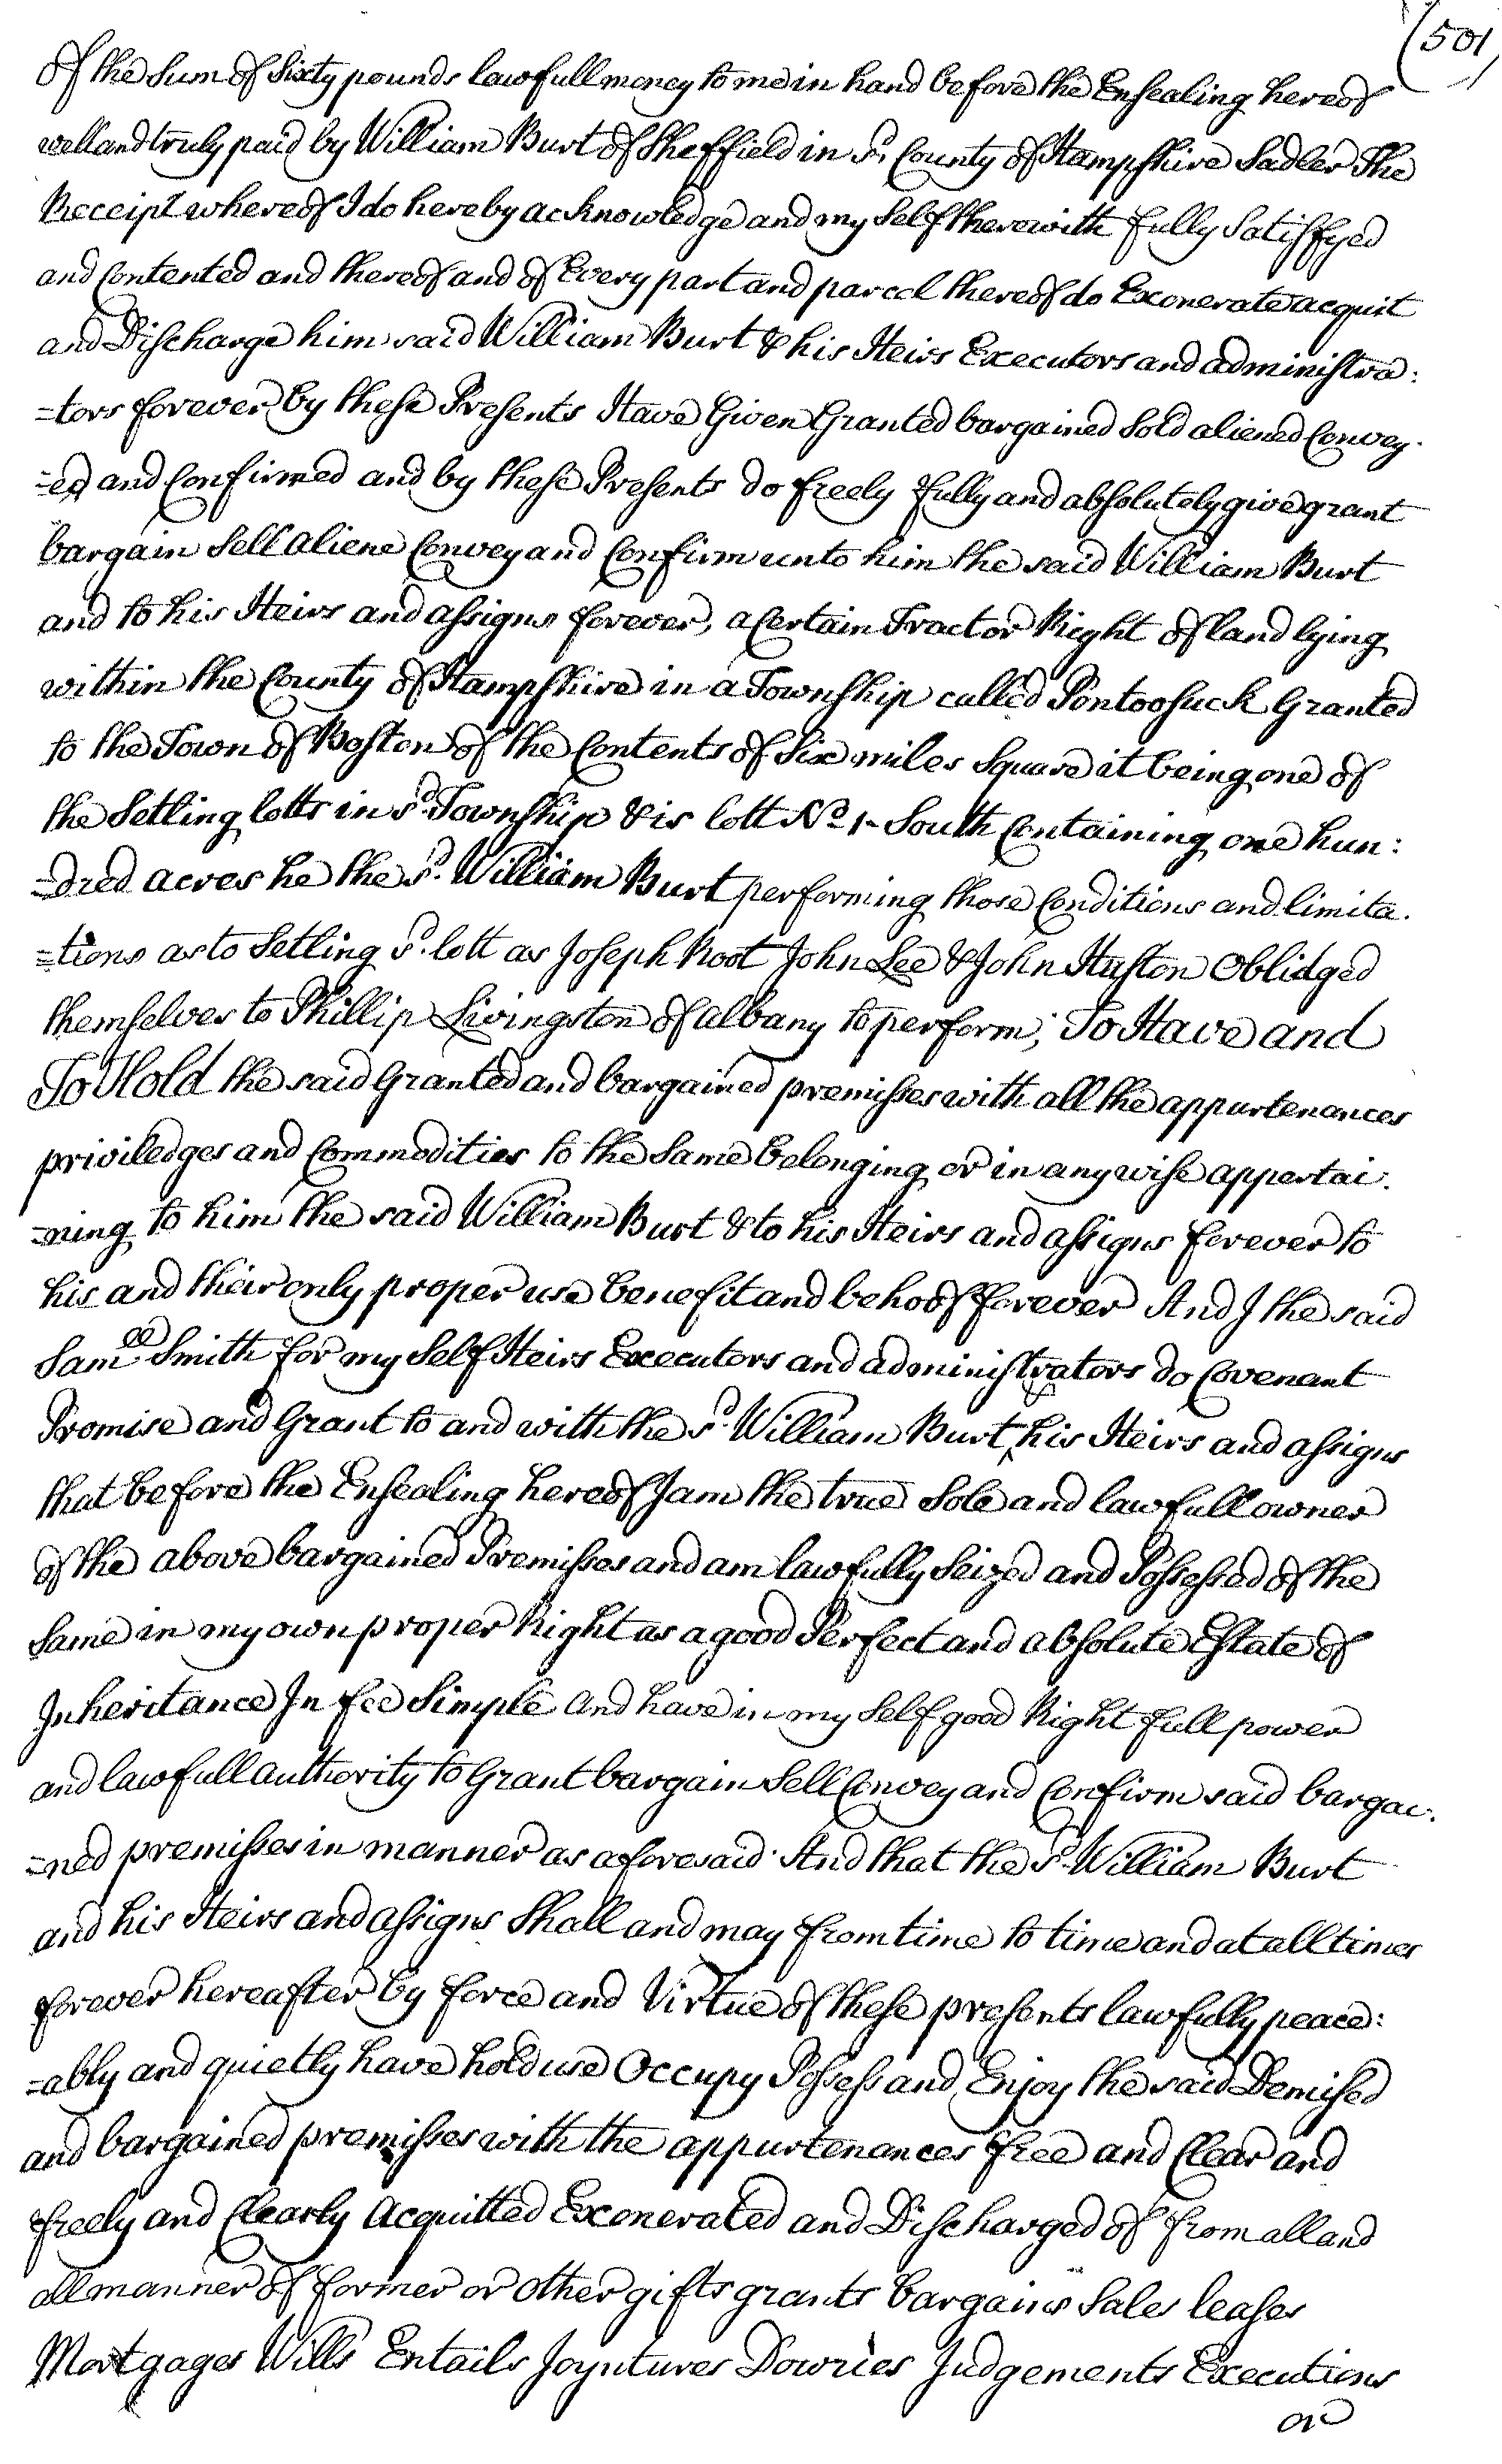 (501)
of the Sum of Sixty pounds lawfull money to me in hand before the Ensealing hereof
well and truly paid by William Burt of Sheffield in sd. County of Hampshire Sadler The
Receipt whereof I do hereby acknowledge and my Self therewith fully Satisfyed
and Contented and thereof and of Every part and parcel thereof do Exonerate acquit
and Discharge him said William Burt & his Heirs Executors and administra:
=tors forever by these Presents Have Given Granted bargained Sold aliened Convey.
=ed and Confirmed and by these Presents do freely fully and absolutely give grant
bargain Sell aliene Convey and Confirm unto him the said William Burt
and to his Heirs and assigns forever, a Certain Tract or Right of land lying
within the County of Hampshire in a Township called Pontoosuck Granted
to the Town of Boston of the Contents of Six miles Square it being one of
the Setling lotts in sd. Township & is lott No. 1- South Containing one hun:
=dred acres he the sd. William Burt performing those Conditions and limita.
=tions as to Setling sd. lott as Joseph Root John Lee & John Huston Oblidged
themselves to Phillip Livingston of Albany to perform; To Have and
To Hold the said Granted and bargained premisses with all the appurtenances
priviledges and Commodities to the Same belonging or in any wise appertai:
=ning to him the said William Burt & to his Heirs and assigns forever to
his and their only proper use benefit and behoof forever And I the said
Samll Smith for my Self Heirs Executors and administrators do Covenant
Promise and Grant to and with the sd. William Burt, his Heirs and assigns
that before the Ensealing hereof I am the true Sole and lawfull owner
of the above bargained Premisses and am lawfully Seized and Possessed of the
Same in my own proper Right as a good Perfect and absolute Estate of
Inheritance In fee Simple And have in my Self good Right full power
and lawfull authority to Grant bargain Sell Convey and Confirm said bargai.
=ned premisses in manner as aforesaid. And that the sd. William Burt
and his Heirs and assigns Shall and may from time to time and at all times
forever hereafter by force and Virtue of these presents lawfully peace:
=ably and quietly have hold use Occupy Possess and Enjoy the said Demised
and bargained premisses with the appurtenances free and Clear and
freely and Clearly Acquitted Exonerated and Discharged of from all and
all manner of former or other gifts grants bargains Sales leases
Mortgages Wills Entails Joyntures Dowries Judgements Executions
or